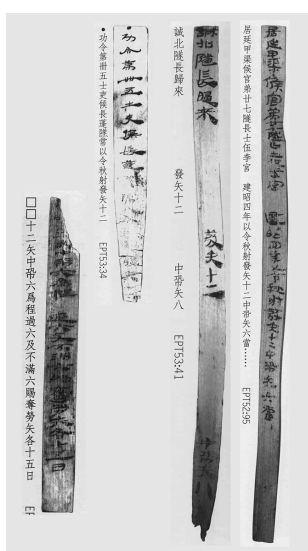 居延甲渠候官第廿七隧長士伍李宮　建昭四年以令秋射發矢十二中帣矢六當……　EPT52:95
誠北隧長歸來　發矢十二　中帣矢八　EPT53:41
•功令第卌五士吏候長蓬隧常以令秋射發矢十二　EPT53:34
□□十二矢中帣六爲程過六及不滿六賜奪勞矢各十五日